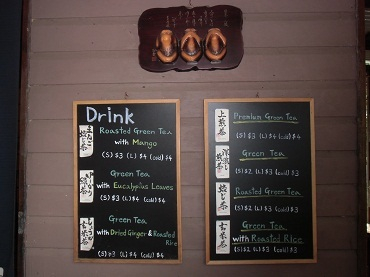 Drink
Roasted Green Tea
with Mango
(S) $3 (L) $4 (cold) $4
Green Tea
with Eucalyptus Leaves
(S) $3 (L) $4 (cold) $4
Green Tea
with Dried Ginger & Roasted
Rice
(S) $3 (L) $4 (cold) $4
上煎茶
Premium Green Tea
(S) $3 (L) $4 (cold) $3
Green Tea
(S) $2 (L) $3 (cold) $3
焙じ茶
Roasted Green Tea
(S) $2 (L) $3 (cold) $3
玄米茶
Green Tea
with Roasted Rice
(S) $2 (L) $3 (cold) $3